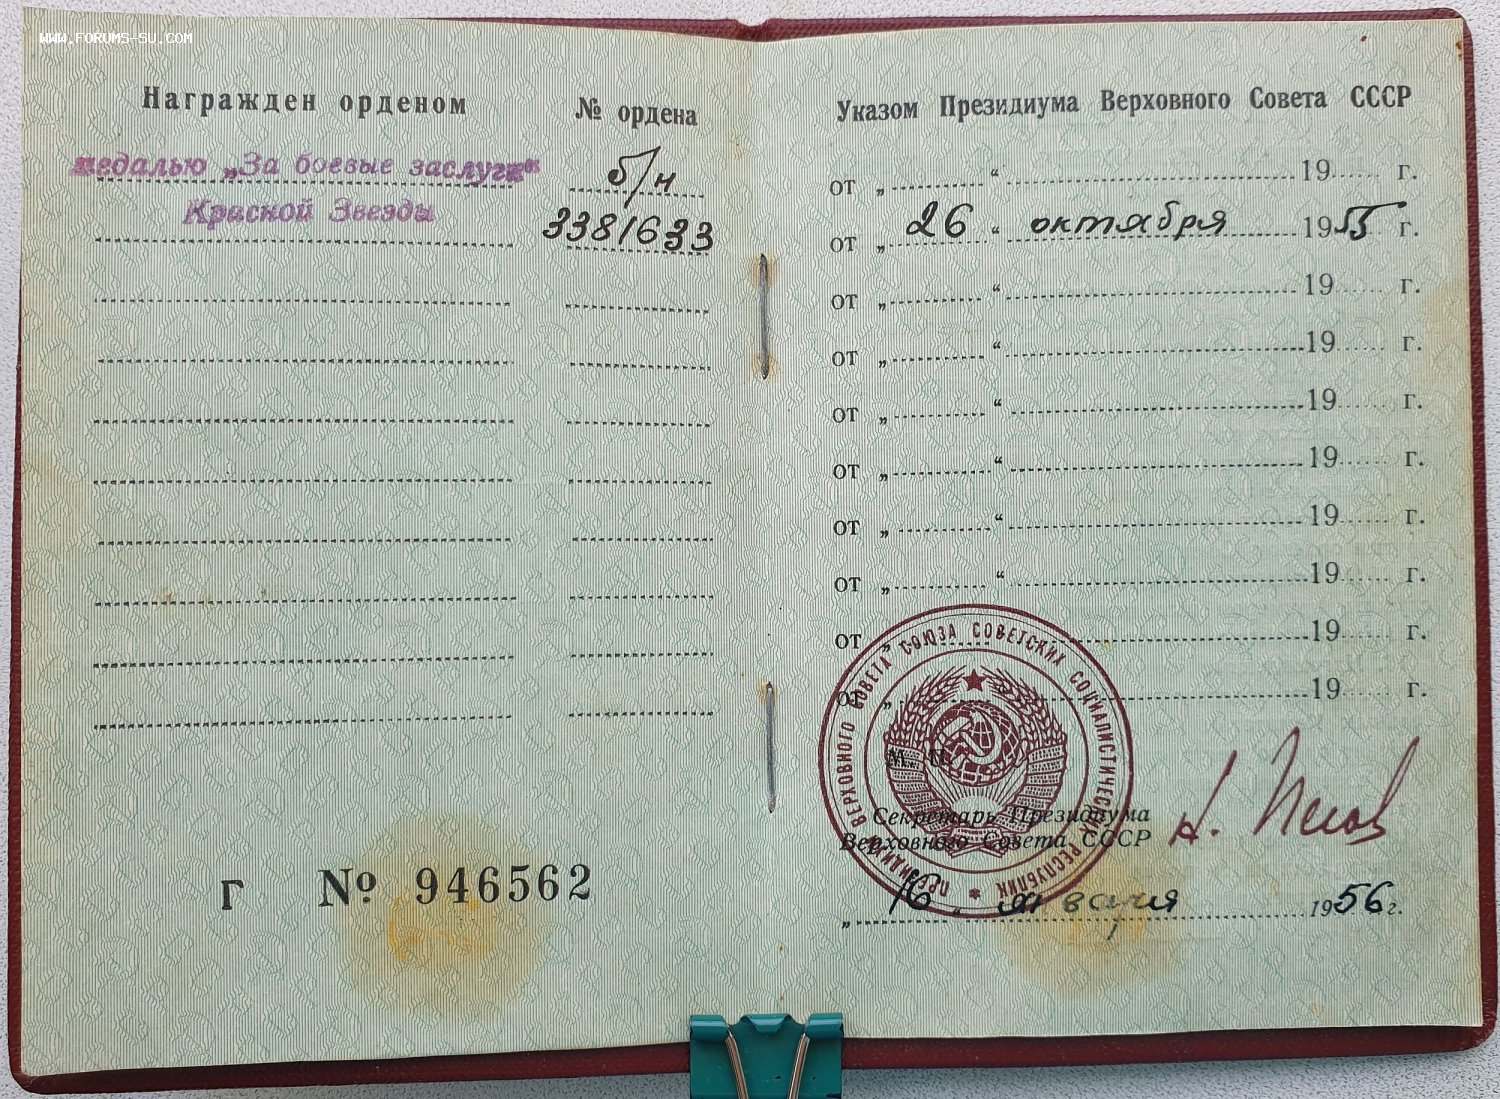 WWW.FORUMS-SU.COM
Награжден орденом
№ ордена
медалью „За боевые заслуги“
б/н
Красной Звезды
3381633
Г № 946562
Указом Президиума Верховного Совета СССР
от „ “ 19 г.
от „ 26 “ октября 1955 г.
от „ “ 19 г.
от „ “ 19 г.
от „ “ 19 г.
от „ “ 19 г.
от „ “ 19 г.
от „ “ 19 г.
от „ 19 г.
от „ 19 г.
ПРЕЗИДИУМ ВЕРХОВНОГО СОВЕТА СОЮЗА СОВЕТСКИХ СОЦИАЛИСТИЧЕСКИХ РЕСПУБЛИК
М. П.
Секретарь Президиума
Верховного Совета СССР
„ 16 “ января 1956 г.